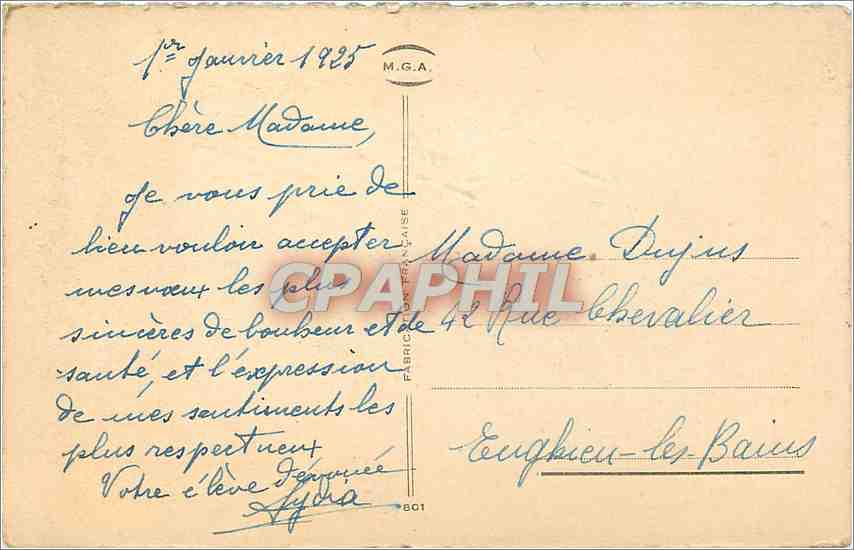 1er Janvier 1925
Chère Madame,
Je vous prie de
bien vouloir accepter
mes vœux les plus
sincères de bonheur et de
santé, et l'expression
de mes sentiments les
plus respectueux
Votre élève dévouée
Lydia
M.G.A.
FABRICATION FRANÇAISE
801
CPAPHIL
Madame Dujus
42 Rue Chevalier
Enghien-les-Bains